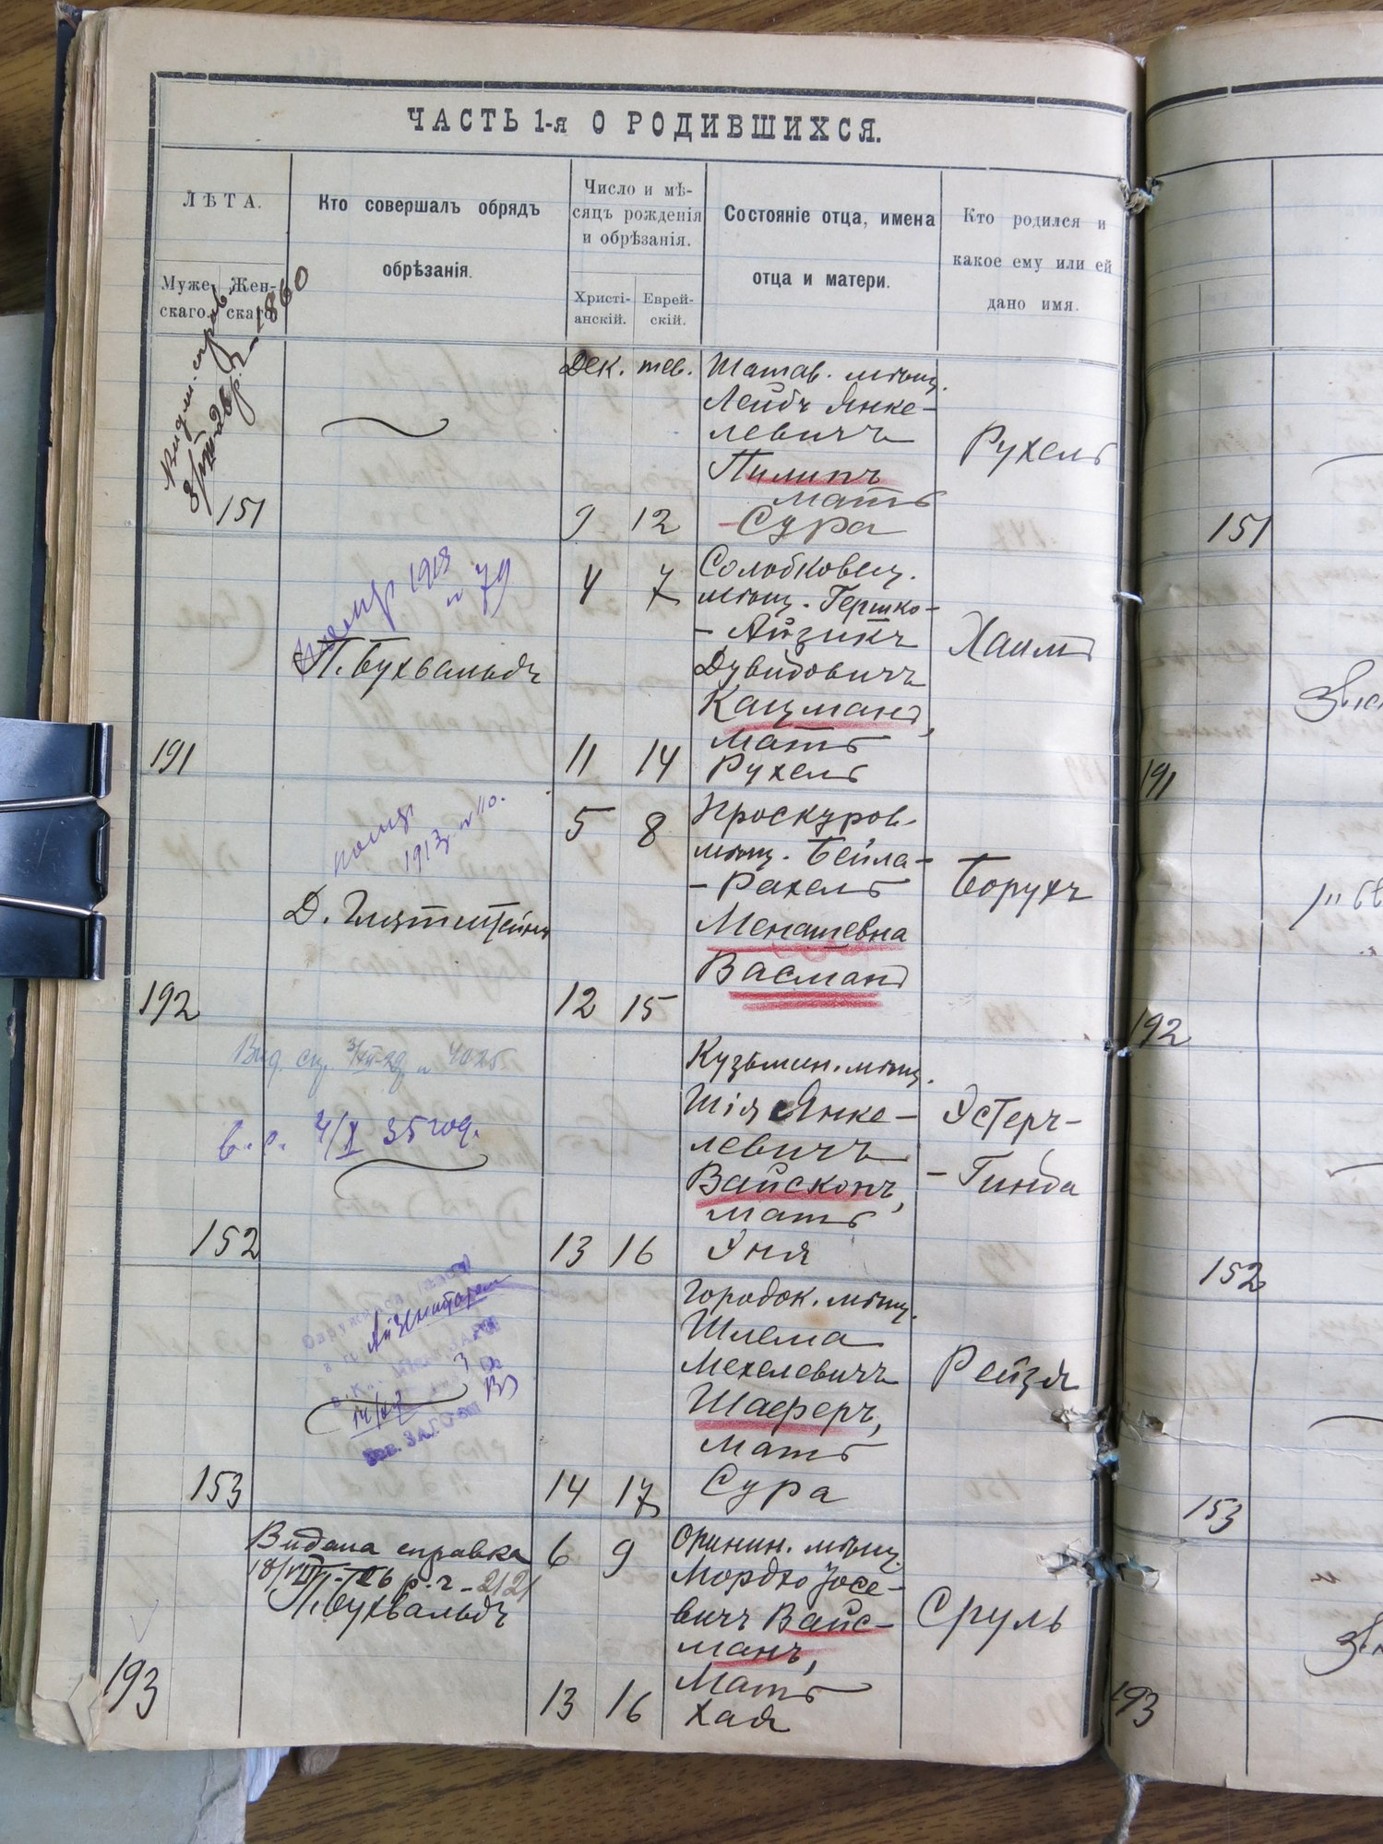 ЧАСТЬ 1-я О РОДИВШИХСЯ.
ЛѢТА.
Муже-
скаго.
Жен-
скаго.
Кто совершалъ обрядъ
обрѣзанія.
Число и мѣ-
сяцъ рожденія
и обрѣзанія.
Христі-
анскій.
Еврей-
скій.
Состояніе отца, имена
отца и матери.
Кто родился и
какое ему или ей
дано имя.
1860
151
Дек. тев.
9 12
Шатав. мѣщ.
Лейбъ Янке-
левичъ
Пилипъ
мать
Сура
Рухель
1918
№ 79
П. Бухвальдъ
191
4 7
11 14
Солобковец.
мѣщ. Гершко-
- Айзикъ
Дувидовичъ
Кацманъ,
мать
Рухель
Хаимъ
1913 №110.
Д. Глутштейнъ
192
5 8
12 15
Проскуров.
мѣщ. Бейла-
- Рахель
Менашевна
Васманъ
Борухъ
Вид. 4025
в. с. 4/X 35 год.
152
13 16
Кузьмин. мѣщ.
Шія Янке-
левичъ
Вайскопъ,
мать
Уня
Эстеръ-
- Гинда
153
14 17
Городок. мѣщ.
Шлема
Мехелевичъ
Шаферъ,
мать
Сура
Рейзя
Видана справка
18/VIII-26 р. г - 2121
П. Бухвальдъ
193
6 9
13 16
Оринин. мѣщ.
Мордко Іосе-
вичъ Вайс-
манъ,
Мать
Хая
Сруль
151
191
192
152
153
193